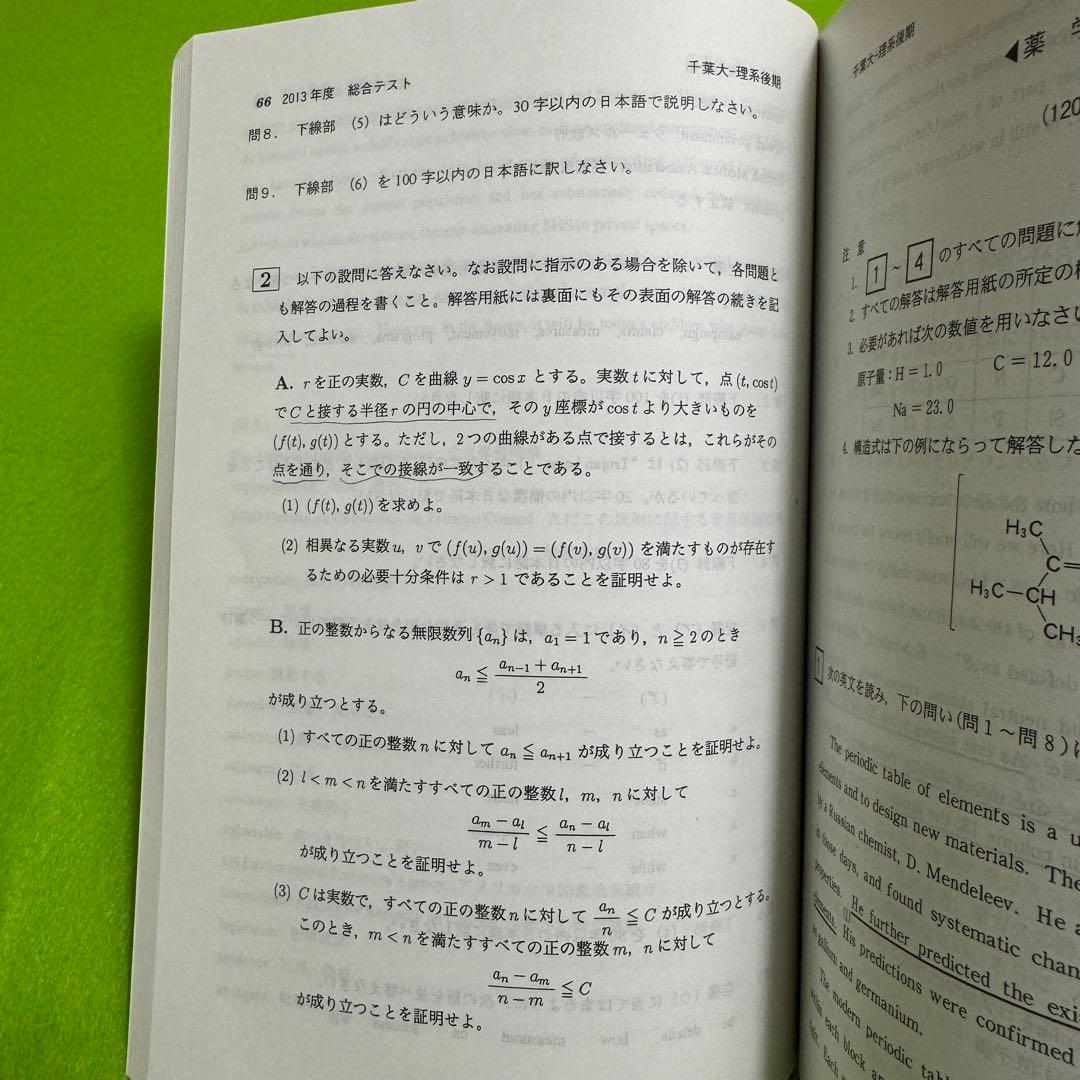 66 2013年度 総合テスト
千葉大-理系後期
問8. 下線部 (5) はどういう意味か。30字以内の日本語で説明しなさい。
問9. 下線部 (6) を100字以内の日本語に訳しなさい。
2 以下の設問に答えなさい。なお設問に指示のある場合を除いて，各問題と
も解答の過程を書くこと。解答用紙には裏面にもその表面の解答の続きを記
入してよい。
A. rを正の実数，Cを曲線 y = cos x とする。実数 t に対して，点 (t, cos t)
で C と接する半径 r の円の中心で，その y 座標が cos t より大きいものを
(f(t), g(t)) とする。ただし，2つの曲線がある点で接するとは，これらがその
点を通り，そこでの接線が一致することである。
(1) (f(t), g(t)) を求めよ。
(2) 相異なる実数 u, v で (f(u), g(u)) = (f(v), g(v)) を満たすものが存在す
るための必要十分条件は r > 1 であることを証明せよ。
B. 正の整数からなる無限数列 {aₙ} は，a₁ = 1 であり，n ≧ 2 のとき
aₙ ≦ (aₙ₋₁ + aₙ₊₁)/2
が成り立つとする。
(1) すべての正の整数 n に対して aₙ ≦ aₙ₊₁ が成り立つことを証明せよ。
(2) l < m < n を満たすすべての正の整数 l, m, n に対して
(aₘ − aₗ)/(m − l) ≦ (aₙ − aₗ)/(n − l)
が成り立つことを証明せよ。
(3) C は実数で，すべての正の整数 n に対して aₙ/n ≦ C が成り立つとする。
このとき，m < n を満たすすべての正の整数 m, n に対して
(aₙ − aₘ)/(n − m) ≦ C
が成り立つことを証明せよ。
千葉大-理系後期
◀薬 学
(120
注 意
1. 1 ~ 4 のすべての問題に
2. すべての解答は解答用紙の所定の
3. 必要があれば次の数値を用いなさい
原子量：H = 1.0 C = 12.0
Na = 23.0
4. 構造式は下の例にならって解答しな
H₃C
C=
H₃C-CH
CH₃
1 次の英文を読み，下の問い(問1~問8)に
The periodic table of elements is a u
elements and to design new materials. The
by a Russian chemist, D. Mendeleev. He a
in those days, and found systematic chan
properties. He further predicted the exi
(1)
elements. His predictions were confirmed
as gallium and germanium.
The modern periodic tab
within each block
right. Each